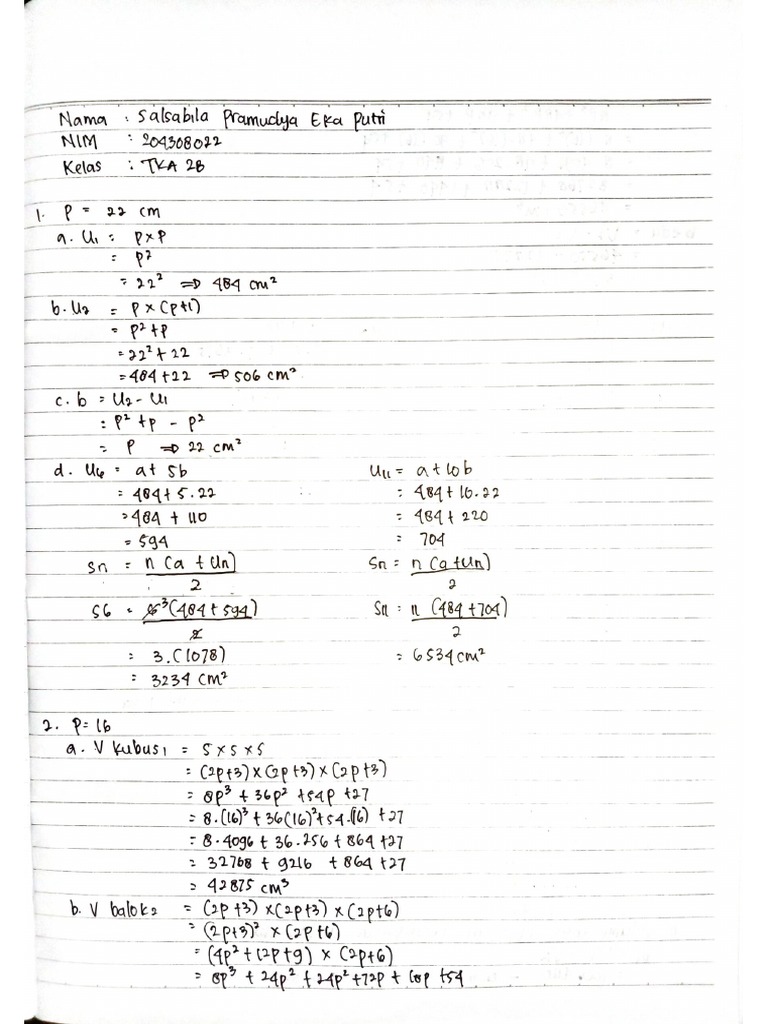 Nama : Salsabila Pramudya Eka Putri
NIM : 204308022
Kelas : TKA 2B
1. P = 22 cm
a. U₁ = p×p
= p²
= 22² ⇒ 484 cm²
b. U₂ = p × (p+1)
= p²+p
= 22² + 22
= 484 + 22 ⇒ 506 cm²
c. b = U₂ - U₁
= p² + p - p²
= p ⇒ 22 cm²
d. U₆ = a + 5b
= 484 + 5.22
= 484 + 110
= 594
Sn = n (a + Un)
2
S6 = 6³ (484 + 594)
2
= 3.(1078)
= 3234 cm²
U₁₁ = a + 10b
= 484 + 10.22
= 484 + 220
= 704
Sn = n (a + Un)
2
S₁₁ = 11 (484 + 704)
2
= 6534 cm²
2. P = 16
a. V kubus₁ = s × s × s
= (2p+3) × (2p+3) × (2p+3)
= 8p³ + 36p² + 54p + 27
= 8.(16)³ + 36(16)² + 54.(16) + 27
= 8.4096 + 36.256 + 864 + 27
= 32768 + 9216 + 864 + 27
= 42875 cm³
b. V balok₂ = (2p+3) × (2p+3) × (2p+6)
= (2p+3)² × (2p+6)
= (4p² + 12p + 9) × (2p+6)
= 8p³ + 24p² + 24p² + 72p + 18p + 54